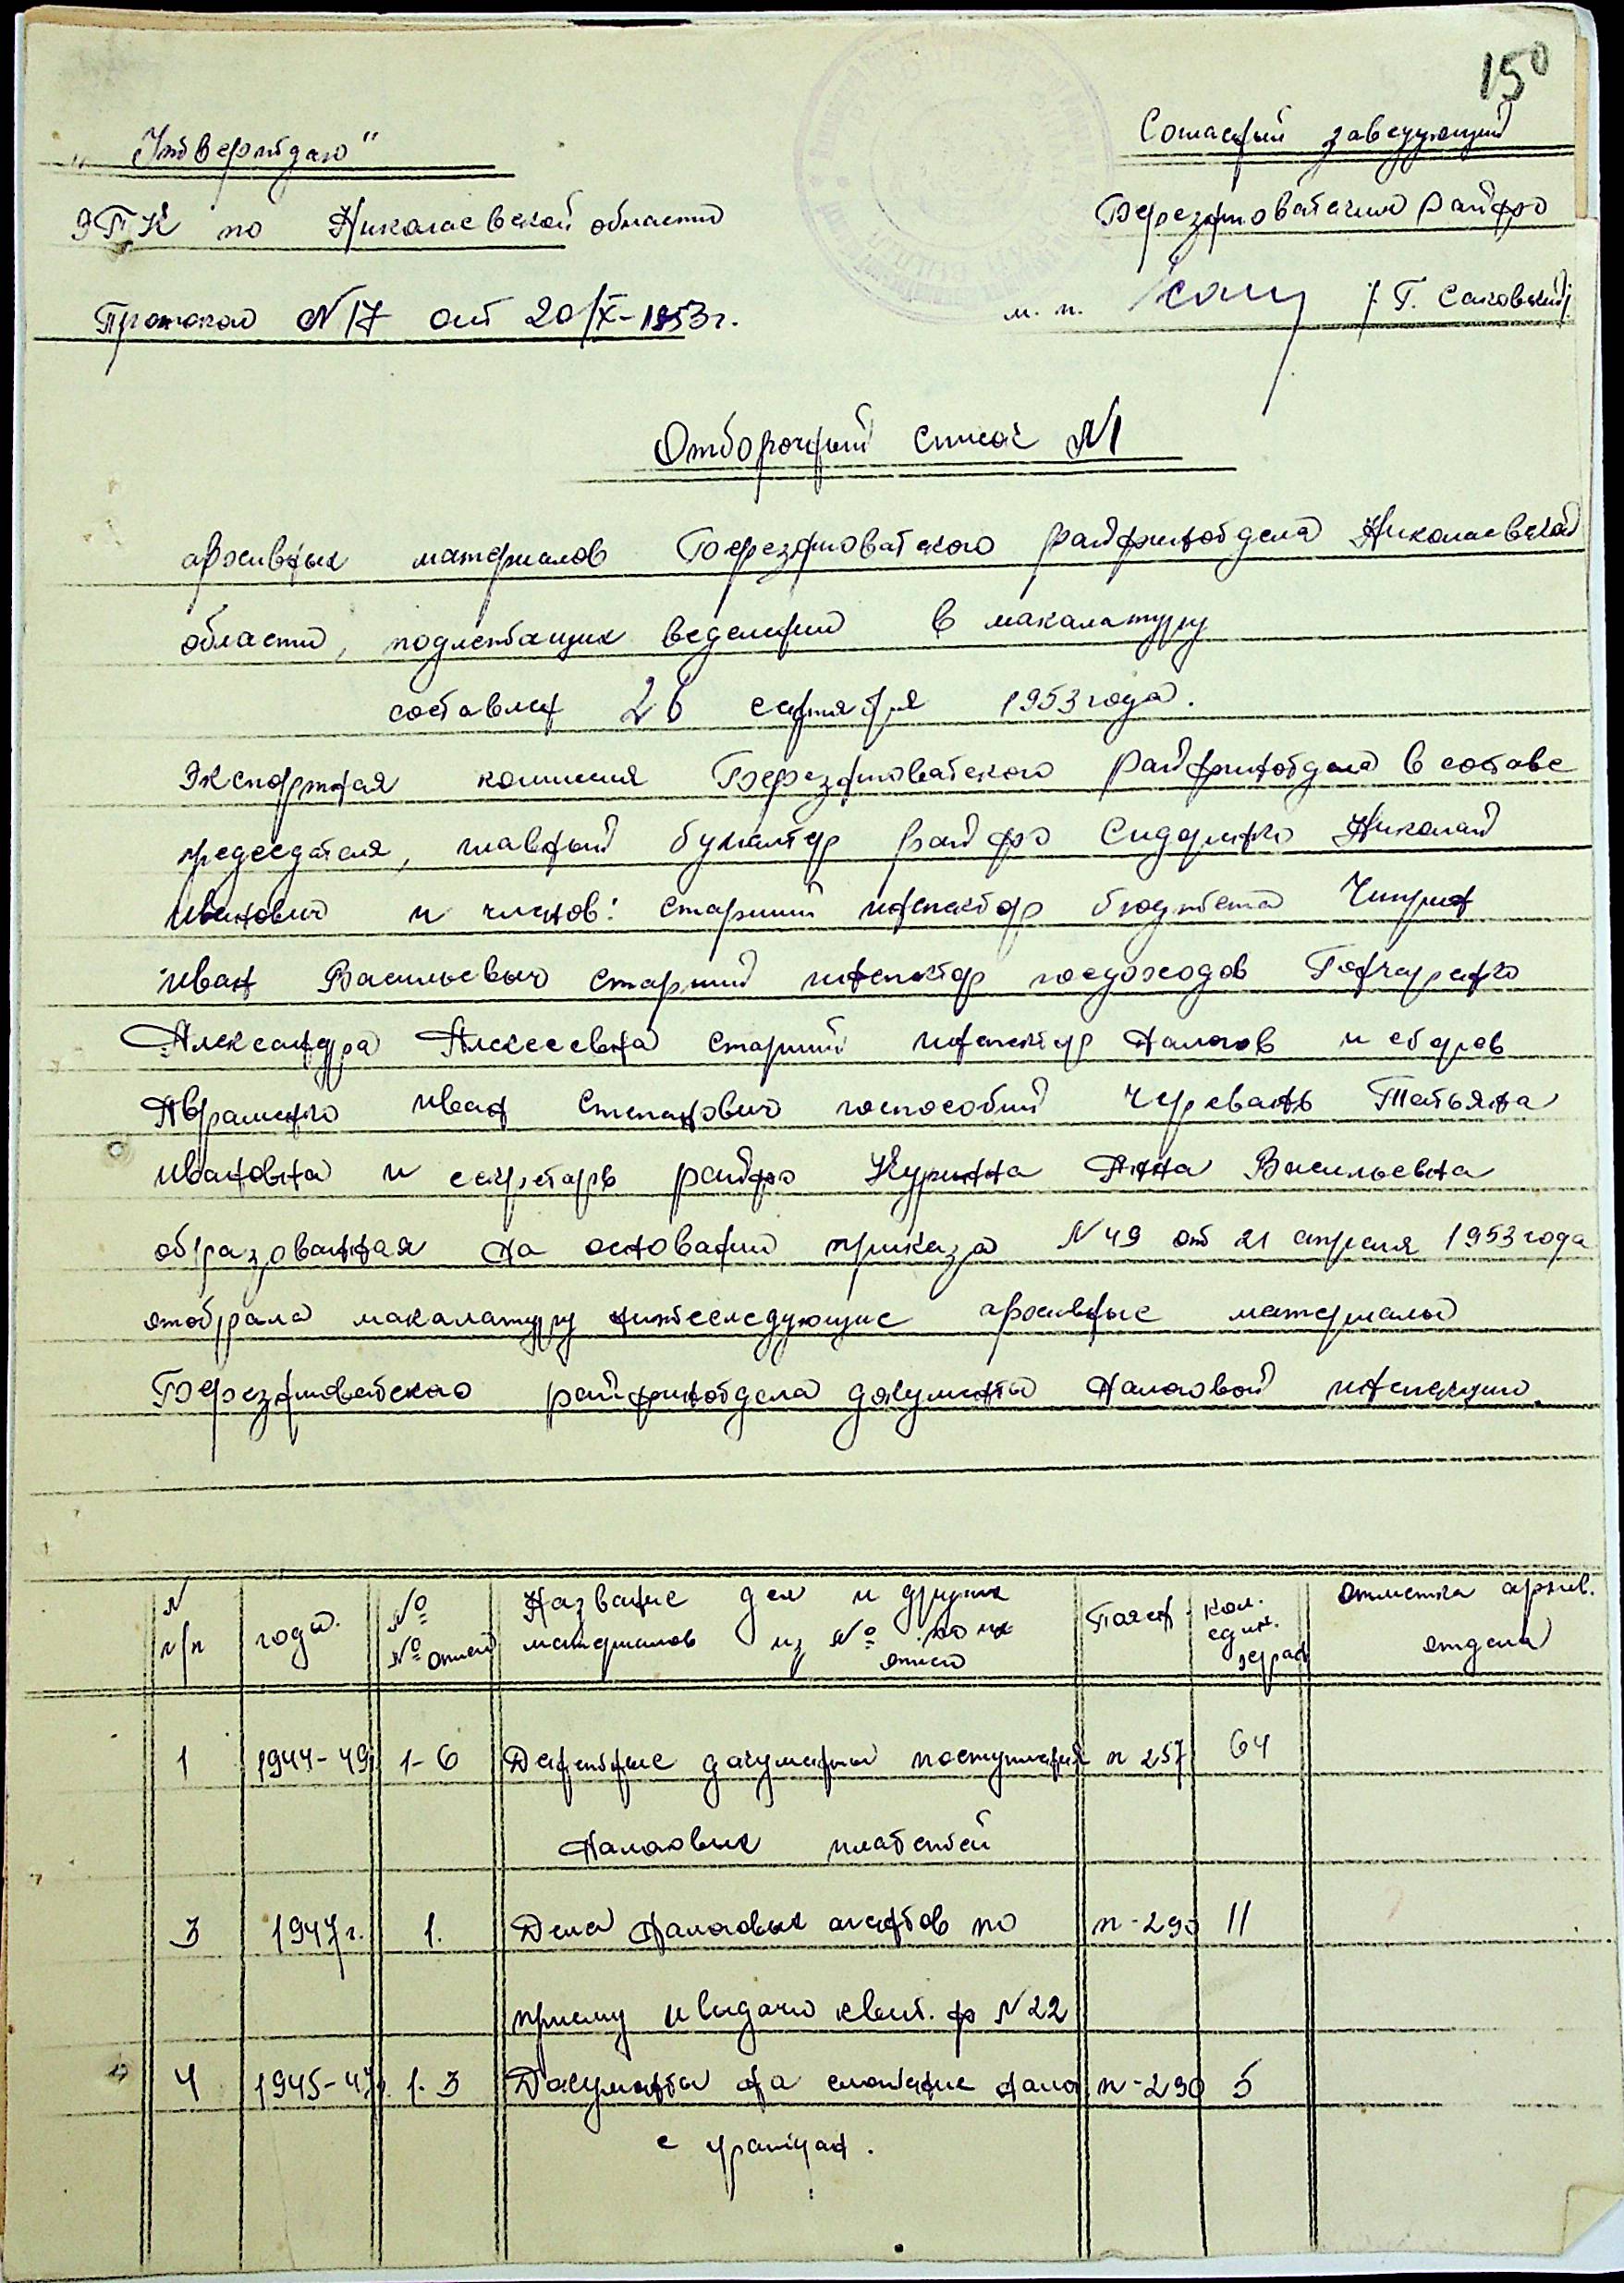 150
„Утверждаю"
ЭПК по Николаевской области
Протокол N17 от 20/X-1953г.
Согласен заведующий
Березнговатским Райфо
м.п. /Г. Саковский/
Отборочный список N1
архивных материалов Березнговатского райфинотдела Николаевской
области, подлежащих веделении в макалатуру
составлен 26 сентября 1953 года.
Экспертная комиссия Березнговатского Райфинотдела в составе
председателя, главный бухгалтер райфо Сидоренко Николай
Иванович и членов: старший инспектор бюджета
Иван Васильевич старший инспектор госдоходов Гончаренко
Александра Алексеевна старший инспектор налогов и сборов
Авраменко Иван Степанович госпособий Черевань Татьяна
Ивановна и секретарь райфо Куринна Анна Васильевна
образованная на основании приказа N 49 от 21 апреля 1953 года
отобрала макалатуру нижеследующие архивные материалы
Березнговатского райфинотдела документы налоговой инспекции.
N п/п
года.
№ № описей
Название дел и других материалов из № по их описи
Поясн.
кол. един. хран
отметка архив. отдела
1 1944-49г 1-6 Денежные документы поступлений п 257 64
налоговых платежей
3 1947г. 1. Дела налоговых агентов по п-290 11
приему и выдачи квит. ф N22
4 1945-47г. 1-3 Документы на сложение нало п-290 5
с граждан.